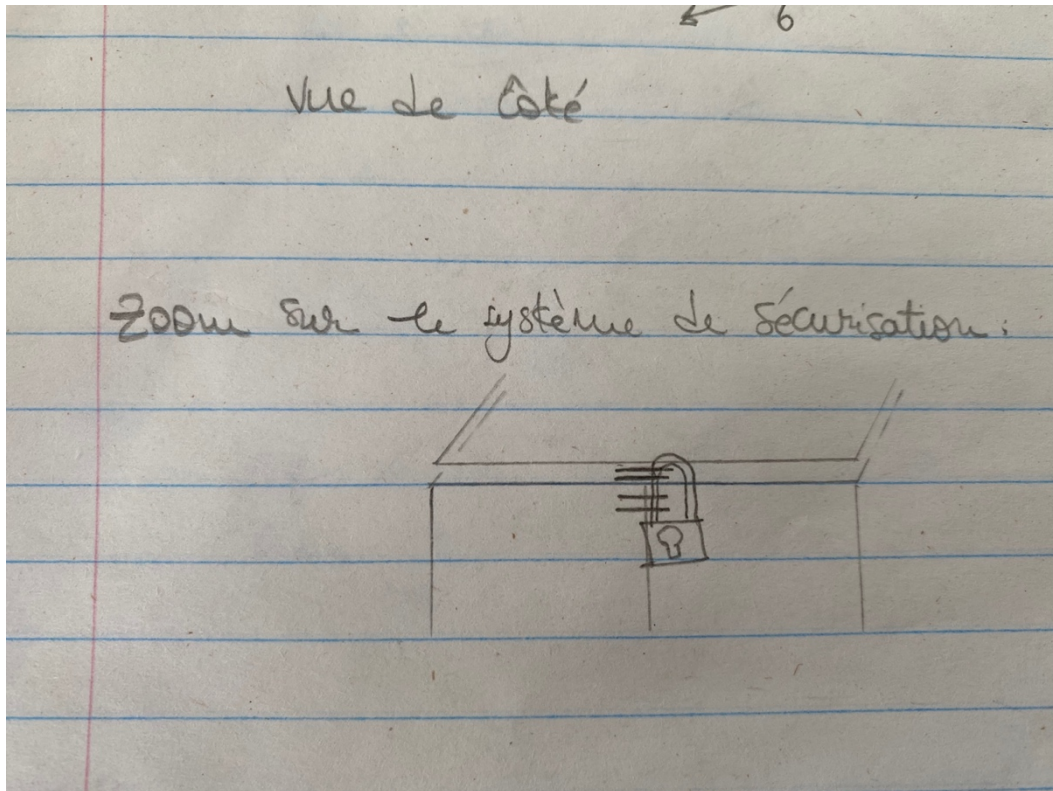 6
Vue de Côté
Zoom sur le système de sécurisation :